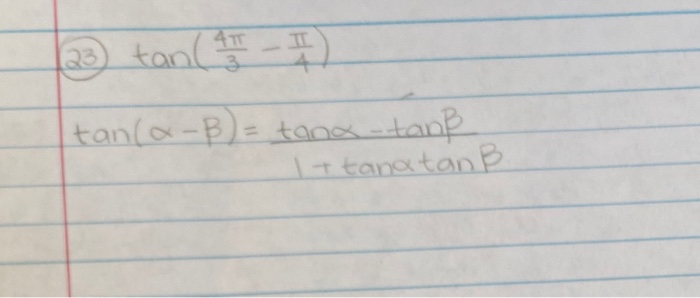 23 tan(4π/3 - π/4)
tan(α-β) = tanα - tanβ / 1 + tanα tanβ